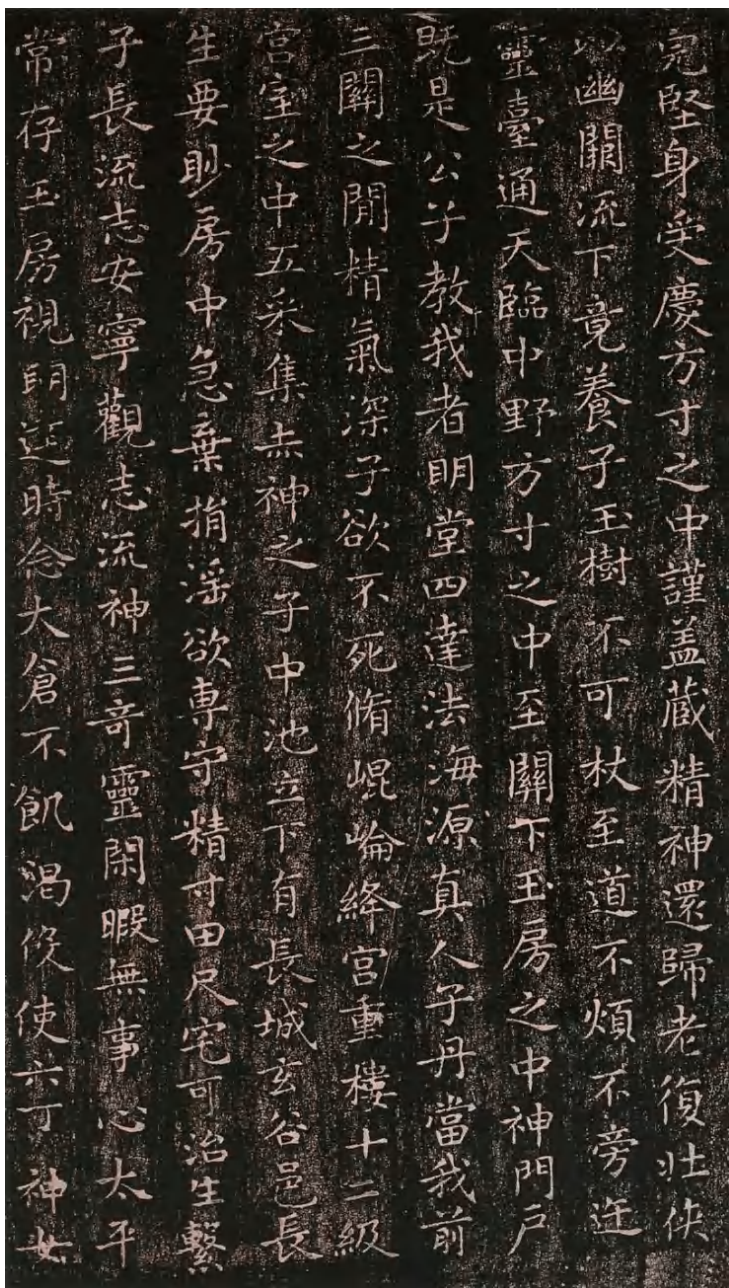 完堅身受慶方寸之中謹盖藏精神還歸老復壯俠
以幽闕流下竟養子玉樹不可杖至道不煩不旁迕
靈臺通天臨中野方寸之中至關下玉房之中神門戶
既是公子教我者明堂四達法海源真人子丹當我前
三關之間精氣深子欲不死脩崐崘絳宮重樓十二級
宮室之中五采集赤神之子中池立下有長城玄谷邑長
生要眇房中急棄捐淫欲專守精寸田尺宅可治生繫
子長流志安寧觀志流神三奇靈閑暇無事心太平
常存玉房視明達時念大倉不飢渴役使六丁神女